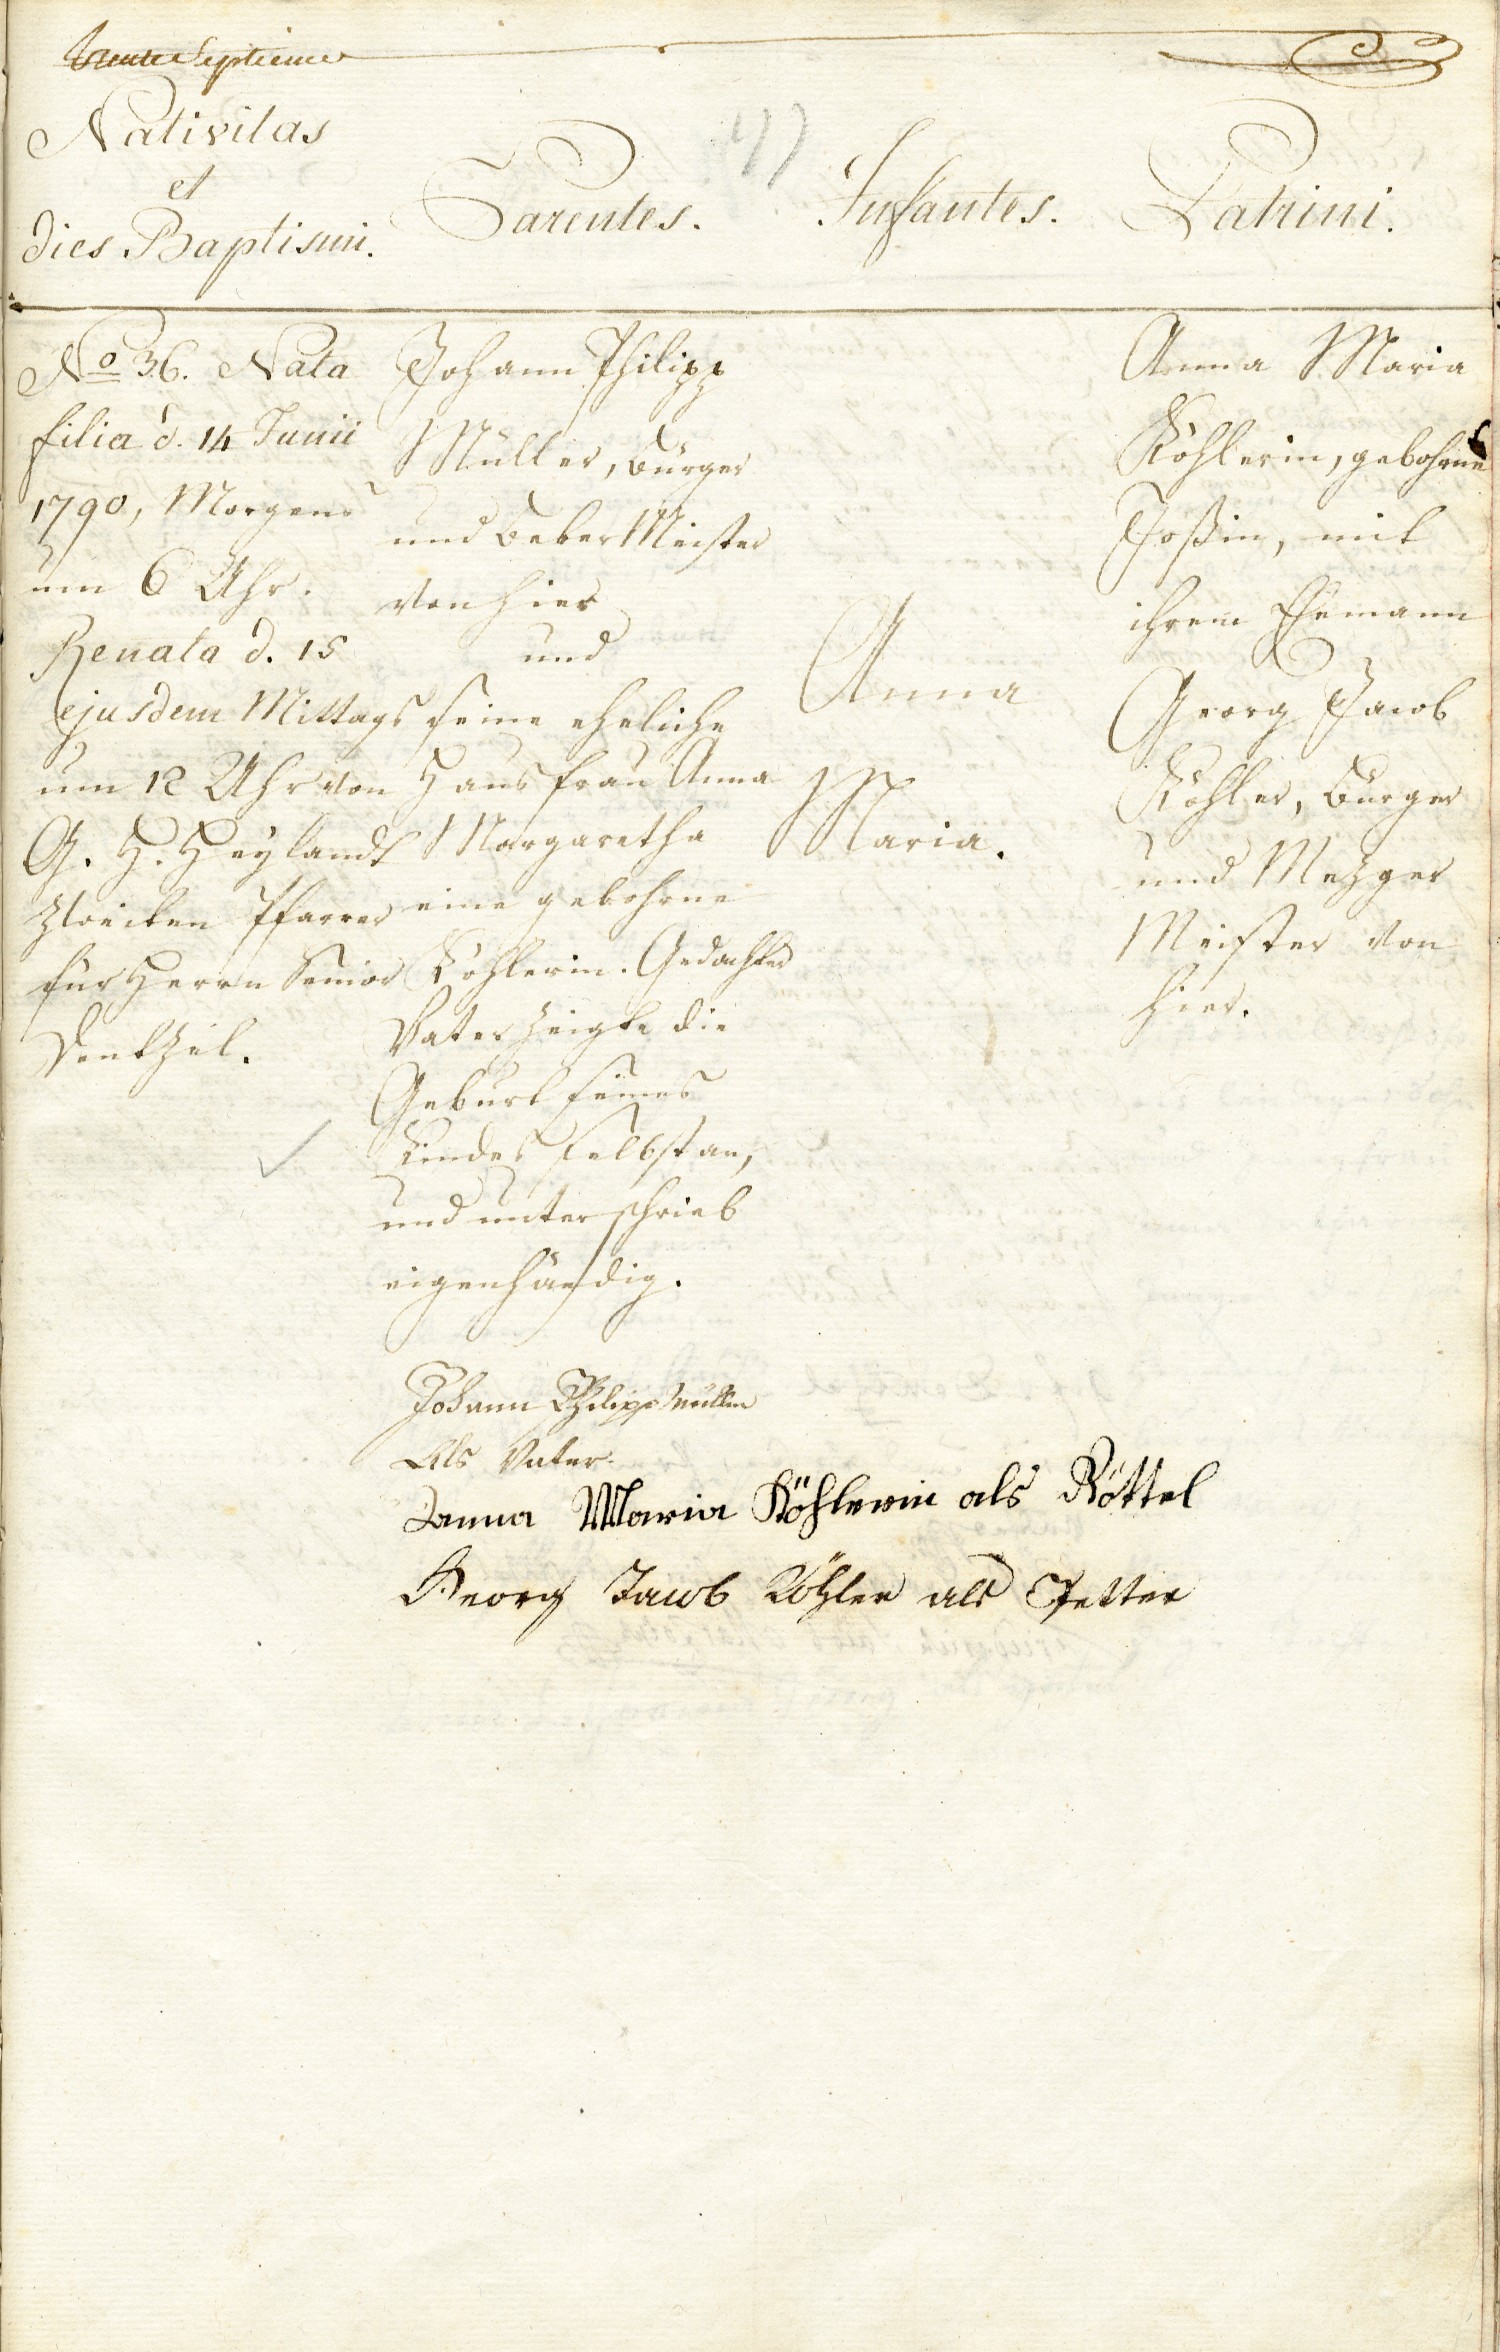 trente Septieme
Nativitas
et
dies Baptismi.
Parentes.
Infantes.
Patrini.
No 36. Nata
filia d. 14 Junii
1790, Morgens
um 6 Uhr.
Renata d. 15
ejusdem Mittags
um 12 Uhr von
G. H. Heylandt
zweiten Pfarrer
für Herrn Senior
Johann Philipp
Müller, Burger
und Weber Meister
von hier
und
seine eheliche
Hausfrau Anna
Margaretha
eine gebohrne
Köhlerin. Gedachter
Vater zeigte die
Geburt seines
Kindes selbst an,
und unterschrieb
eigenhändig.
Anna
Maria.
Anna Maria
Köhlerin, gebohrne
Joßin, mit
ihrem Ehemann
Georg Jacob
Köhler, Burger
und Mezger
Meister von
hier.
Johann Philipp Müller
Als Vater.
Anna Maria Köhlerin als Göttel
Georg Jacob Köhler als Petter